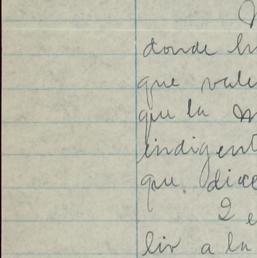 donde
que vale
que la
indigent
que, dice
lir a la